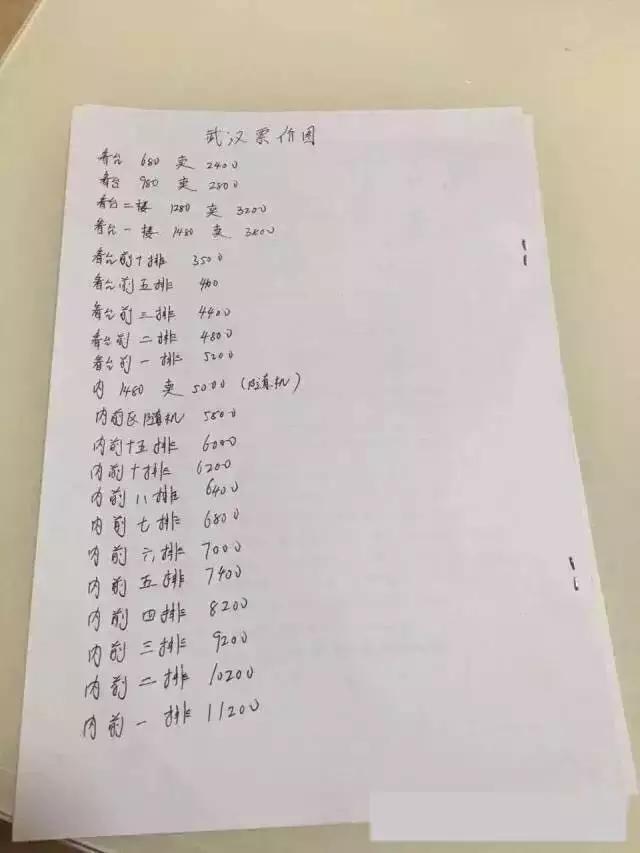 武汉票价图
看台 680 卖 2400
看台 980 卖 2800
看台二楼 1280 卖 3200
看台一楼 1480 卖 3800
看台前十排 3500
看台前五排 400
看台前三排 4400
看台前二排 4800
看台前一排 5200
内 1480 卖 5000 (随机)
内前区随机 5800
内前十五排 6000
内前十排 6200
内前八排 6400
内前七排 6800
内前六排 7000
内前五排 7400
内前四排 8200
内前三排 9200
内前二排 10200
内前一排 11200